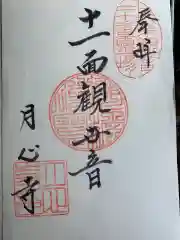 奉拝
十一面観世音
月心寺